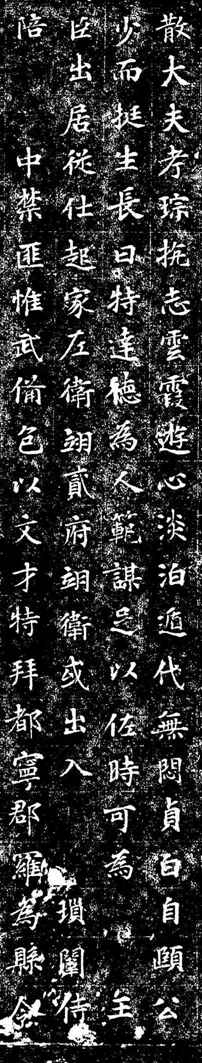 散大夫孝琮抗志雲霞遊心淡泊遁代無悶貞白自頤公
少而挺生長曰特達德為人範謀足以佐時可為　主
臣出居從仕起家左衛翊貳府翊衛或出入　瑣闈侍
陪　中禁匪惟武俻包以文才特拜都寧郡羅為縣令